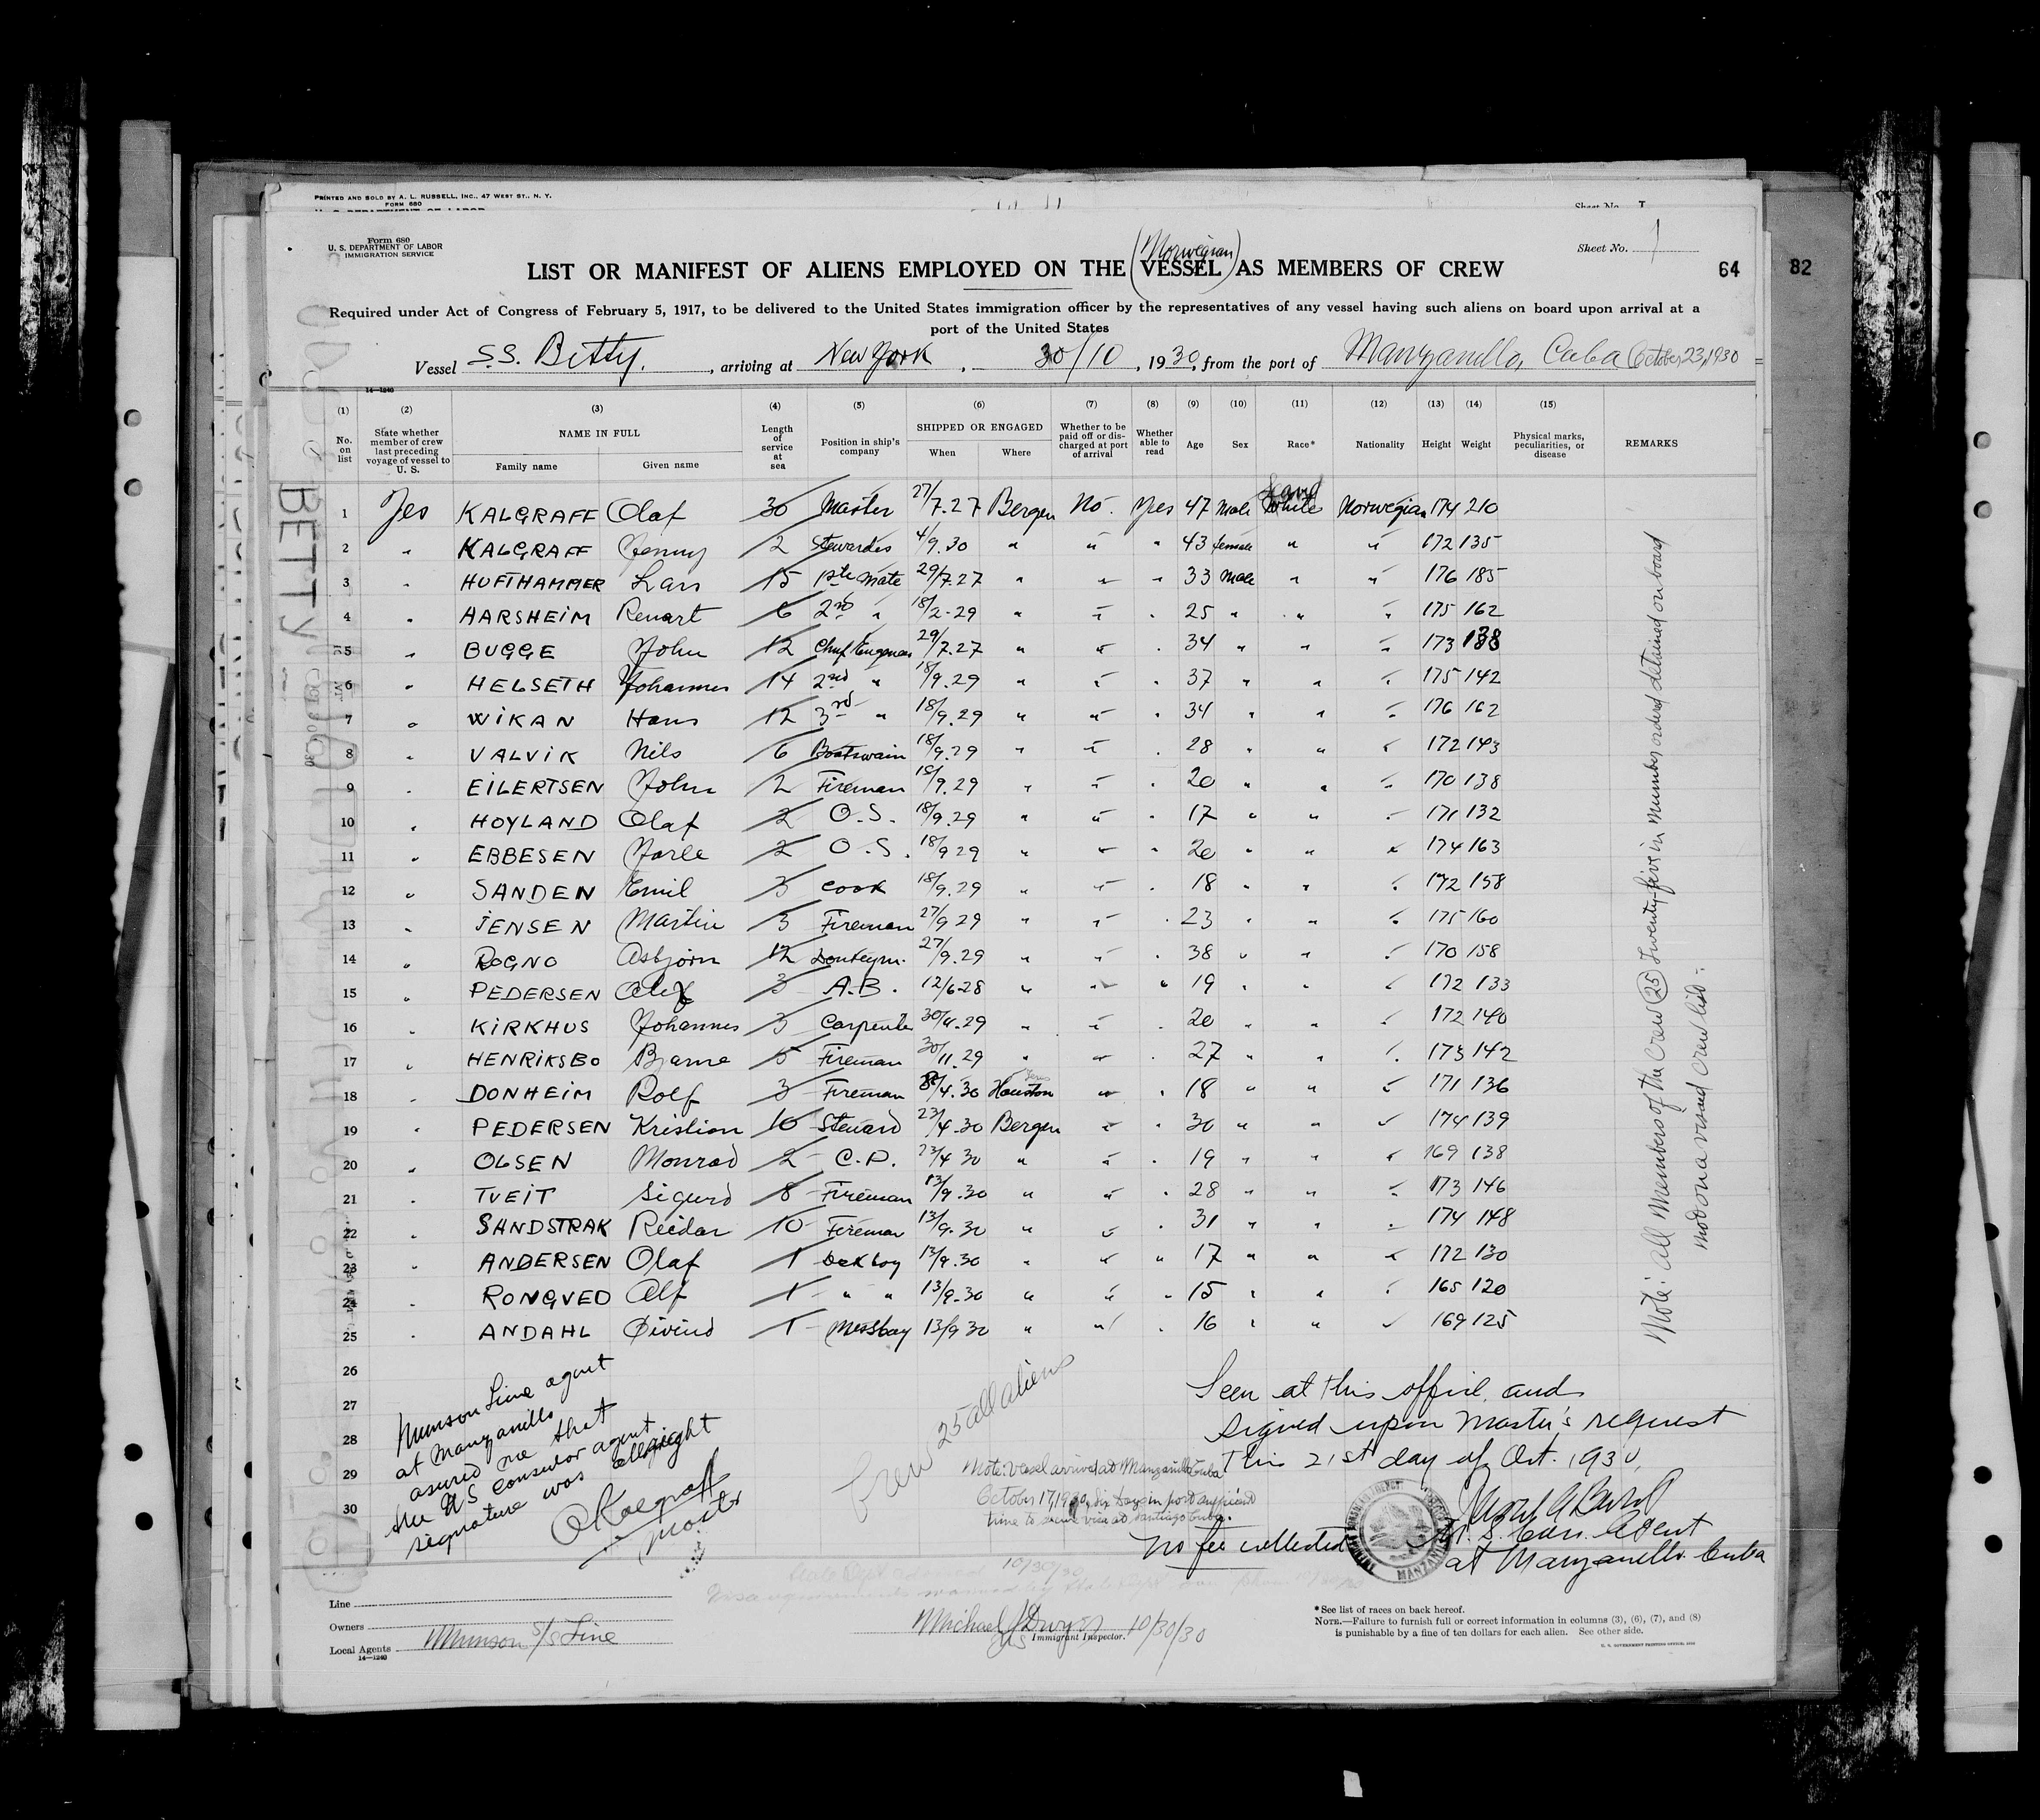 PRINTED AND SOLD BY A. L. RUSSELL, INC., 47 WEST ST., N. Y.
FORM 680
U. S. DEPARTMENT OF LABOR
Sheet No. I
Form 680
U. S. DEPARTMENT OF LABOR
IMMIGRATION SERVICE
Sheet No. 1
(Norwegian)
LIST OR MANIFEST OF ALIENS EMPLOYED ON THE VESSEL AS MEMBERS OF CREW
64
82
Required under Act of Congress of February 5, 1917, to be delivered to the United States immigration officer by the representatives of any vessel having such aliens on board upon arrival at a
port of the United States
Vessel S.S. Betty., arriving at New York, 30/10, 1930, from the port of Manzanillo, Cuba October 23, 1930
14—1240
(1) (2) (3) (4) (5) (6) (7) (8) (9) (10) (11) (12) (13) (14) (15)
No. on list
State whether member of crew last preceding voyage of vessel to U. S.
NAME IN FULL
Family name
Given name
Length of service at sea
Position in ship's company
SHIPPED OR ENGAGED
When
Where
Whether to be paid off or discharged at port of arrival
Whether able to read
Age
Sex
Race*
Nationality
Height
Weight
Physical marks, peculiarities, or disease
REMARKS
1 Yes KALGRAFF Olaf 30 Master 27/7.27 Bergen No. Yes 47 Male White Norwegian 174 210
2 " KALGRAFF Jenny 2 Stewardes 4/9.30 " " " 43 female " " 172 135
3 " HUFTHAMMER Lars 15 1ste Mate 29/7.27 " " " 33 Male " " 176 185
4 " AARSHEIM Renart 6 2nd " 18/2-29 " " " 25 " " " 175 162
5 " BUGGE John 12 Chief Engineer 29/7.27 " " " 34 " " " 173 138
6 " HELSETH Johannes 14 2nd " 18/9.29 " " " 37 " " " 175 142
7 " WIKAN Hans 12 3rd " 18/9.29 " " " 34 " " " 176 162
8 " VALVIK Nils 6 Boatswain 18/9.29 " " " 28 " " " 172 143
9 " EILERTSEN John 2 Fireman 18/9.29 " " " 20 " " " 170 138
10 " HOYLAND Olaf 2 O.S. 18/9.29 " " " 17 " " " 171 132
11 " EBBESEN Jarle 2 O.S. 18/9 29 " " " 20 " " " 174 163
12 " SANDEN Emil 3 Cook 18/9.29 " " " 18 " " " 172 158
13 " JENSEN Martin 3 Fireman 27/9 29 " " 23 " " " 175 160
14 " ROGNO Asbjorn 12 Donkeym. 27/9.29 " " " 38 " " " 170 158
15 " PEDERSEN Alf 3 A.B. 12/6-28 " " " 19 " " " 172 133
16 " KIRKHUS Johannes 3 Carpenter 30/4.29 " " " 20 " " " 172 140
17 " HENRIKSBO Bjarne 5 Fireman 30/11.29 " " " 27 " " " 173 142
18 " DONHEIM Rolf 3 Fireman 8/4.30 Houston " " 18 " " " 171 136
19 " PEDERSEN Kristian 10 Steward 23/4.30 Bergen " " 30 " " " 174 139
20 " OLSEN Monrad 2 C.P. 23/4 30 " " " 19 " " " 169 138
21 " TVEIT Sigurd 8 Fireman 13/9.30 " " " 28 " " " 173 146
22 " SANDSTRAK Reidar 10 Fireman 13/9.30 " " " 31 " " " 174 148
23 " ANDERSEN Olaf 1 Deckboy 13/9.30 " " " 17 " " " 172 130
24 " RONGVED Alf 1 " " 13/9.30 " " " 15 " " " 165 120
25 " ANDAHL Øivind 1 Messboy 13/9 30 " " " 16 " " " 169 125
26
27
28
29
30
Note: All Members of the Crew (25) Twenty-five in number ordered detained on board
and on a visaed crew list.
BETTY
Munson Line agent
at Manzanillo
asured me that
the US consular agent
signature was allright
O Kalgraff
Master
Crew 25 all aliens
Note: Vessel arrived at Manzanillo Cuba
October 17, 1930, six days in port sufficient
time to secure visa at Santiago Cuba.
Seen at this office and
signed upon Master's request
This 21st day of Oct. 1930,
U. S. Con. Agent
at Manzanillo Cuba
No fee collected
10/30/30
Line
Owners
Local Agents Munson S/S Line
14—1240
Michael J Dwyer 10/30/30
US Immigrant Inspector.
*See list of races on back hereof.
NOTE.—Failure to furnish full or correct information in columns (3), (6), (7), and (8)
is punishable by a fine of ten dollars for each alien. See other side.
U. S. GOVERNMENT PRINTING OFFICE